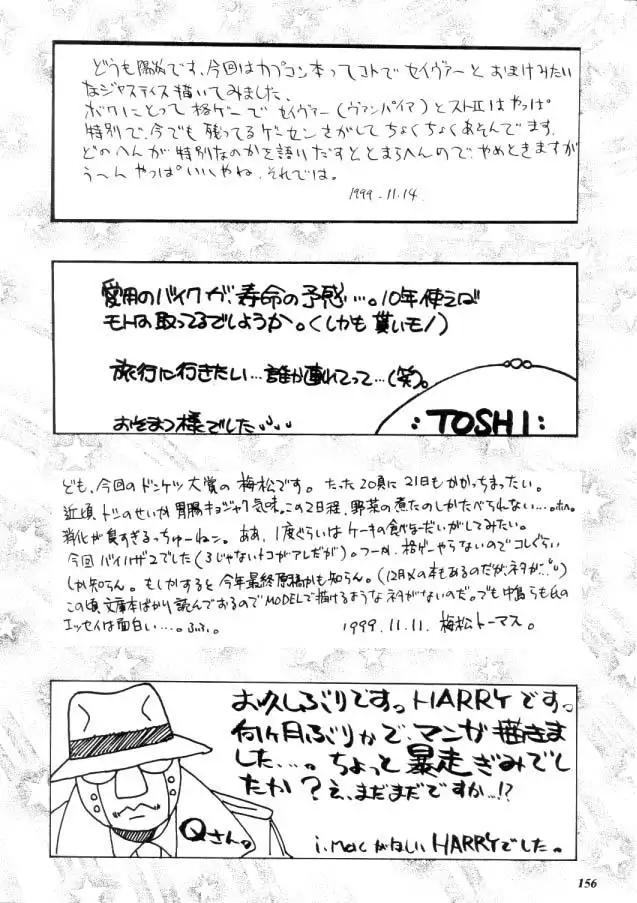 どうも陽気です、今回はカプコン本ってコトでセイヴァーとおまけみたい
なジャスティス描いてみました。
ボクにとって格ゲーでセイヴァー(ヴァンパイア)とストⅡはやっぱ
特別で、今でも残ってるゲーセンさがしてちょくちょくあそんでます。
どのへんが特別なのかを語りだすととまらへんので、やめときますが
う〜んやっぱいいやね、それでは。
1999.11.14.
愛用のバイクが、寿命の予感…。10年使えば
モトは取ってるでしょうか。(しかも貰いモノ)
旅行に行きたい…誰か連れてって…(笑)。
おそまつ様でした
:TOSHI:
ども、今回のドンケツ大賞の梅松です。たった20頁に21日もかかっちまったい。
近頃、トシのせいか胃腸キョジャク気味。この2日程、野菜の煮たのしかたべられない…。
消化が良すぎるっちゅーねン。ああ、1度ぐらいはケーキの食べほーだいがしてみたい。
今回バイハザ2でした(3じゃないトコがアレだが)。フーか、格ゲーやらないのでコレぐらい
しか知らん。もしかすると今年最終原稿かも知らん。(12月〆の本もあるのだがネタが…)
この頃文庫本ばかり読んでおるのでMODELで描けるようなネタがないのだ。でも中島らも氏の
エッセイは面白い…。ふふ。
1999.11.11. 梅松トーマス。
お久しぶりですっHARRYですっ
何ヶ月ぶりかで、マンガ描きま
した…。ちょっと暴走ぎみでし
たか?え、まだまだですか…!?
Qさん。
i.macがほしいHARRYでした。
156